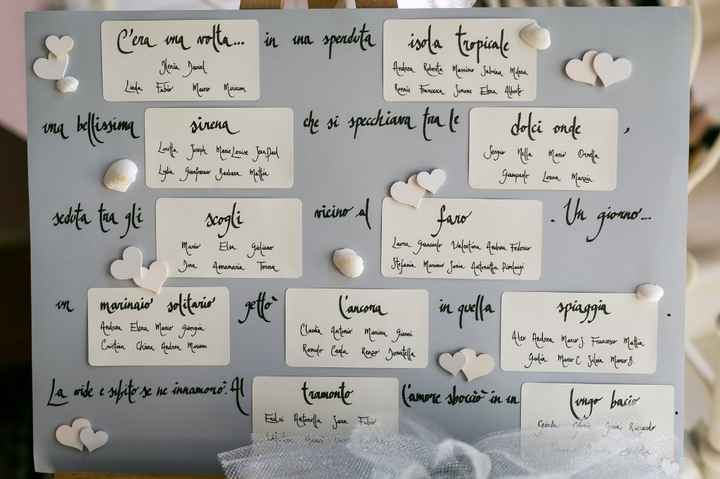 C'era una volta... in una sperduta isola tropicale
Ilenia David
Linda Fabio Marco Miriam
Andrea Roberta Massimo Sabrina Milena
Ronnie Francesca Simone Elena Alberto
una bellissima sirena che si specchiava tra le dolci onde ,
Loretta Joseph Marie Louise Jean Paul
Lydia Gianfranco Barbara Mattia
Sergio Nella Mario Ornella
Giampaolo Loana Marzia
seduta tra gli scogli vicino al faro . Un giorno...
Mario Elsa Galeano
Ina Annamaria Teresa
Laura Giancarlo Valentina Andrea Federico
Stefania Massimo Sonia Antonella Pierluigi
un marinaio solitario gettò l'ancora in quella spiaggia .
Andrea Elena Marco Giorgia
Cristian Chiara Andrea Miriam
Claudia Antonio Marina Gianni
Renato Carla Renzo Donatella
Alex Andrea Marco J. Francesco Mattia
Giulia Marco C. Silvia Marco B.
La vide e subito se ne innamorò. Al tramonto l'amore sbocciò in un lungo bacio .
Antonella Fabio
Riccardo